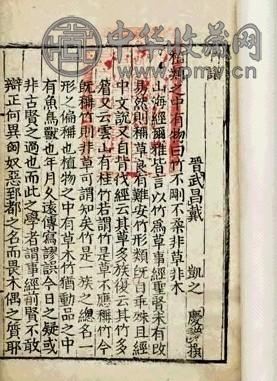 中华收藏网
譜
晉武昌戴 凱之 慶 撰
植類之中有物曰竹不剛不柔非草非木
山海經爾雅皆言以竹爲草事經聖賢未有改
易然則稱草良有難安竹形類既自乖殊且經
中文說又自背伐經云其草多族復云其竹多
篃又云雲山有桂竹若謂竹是草不應稱竹今
既稱竹則非草可謂知矣竹是一族之總名一
形之偏稱也植物之中有草木竹猶動品之中
有魚鳥獸也年月久遠傳寫謬誤今日之疑或
非古賢之過也而此之學者謂事經前賢不敢
辯正何異匈奴惡郅都之名而畏木偶之質耶